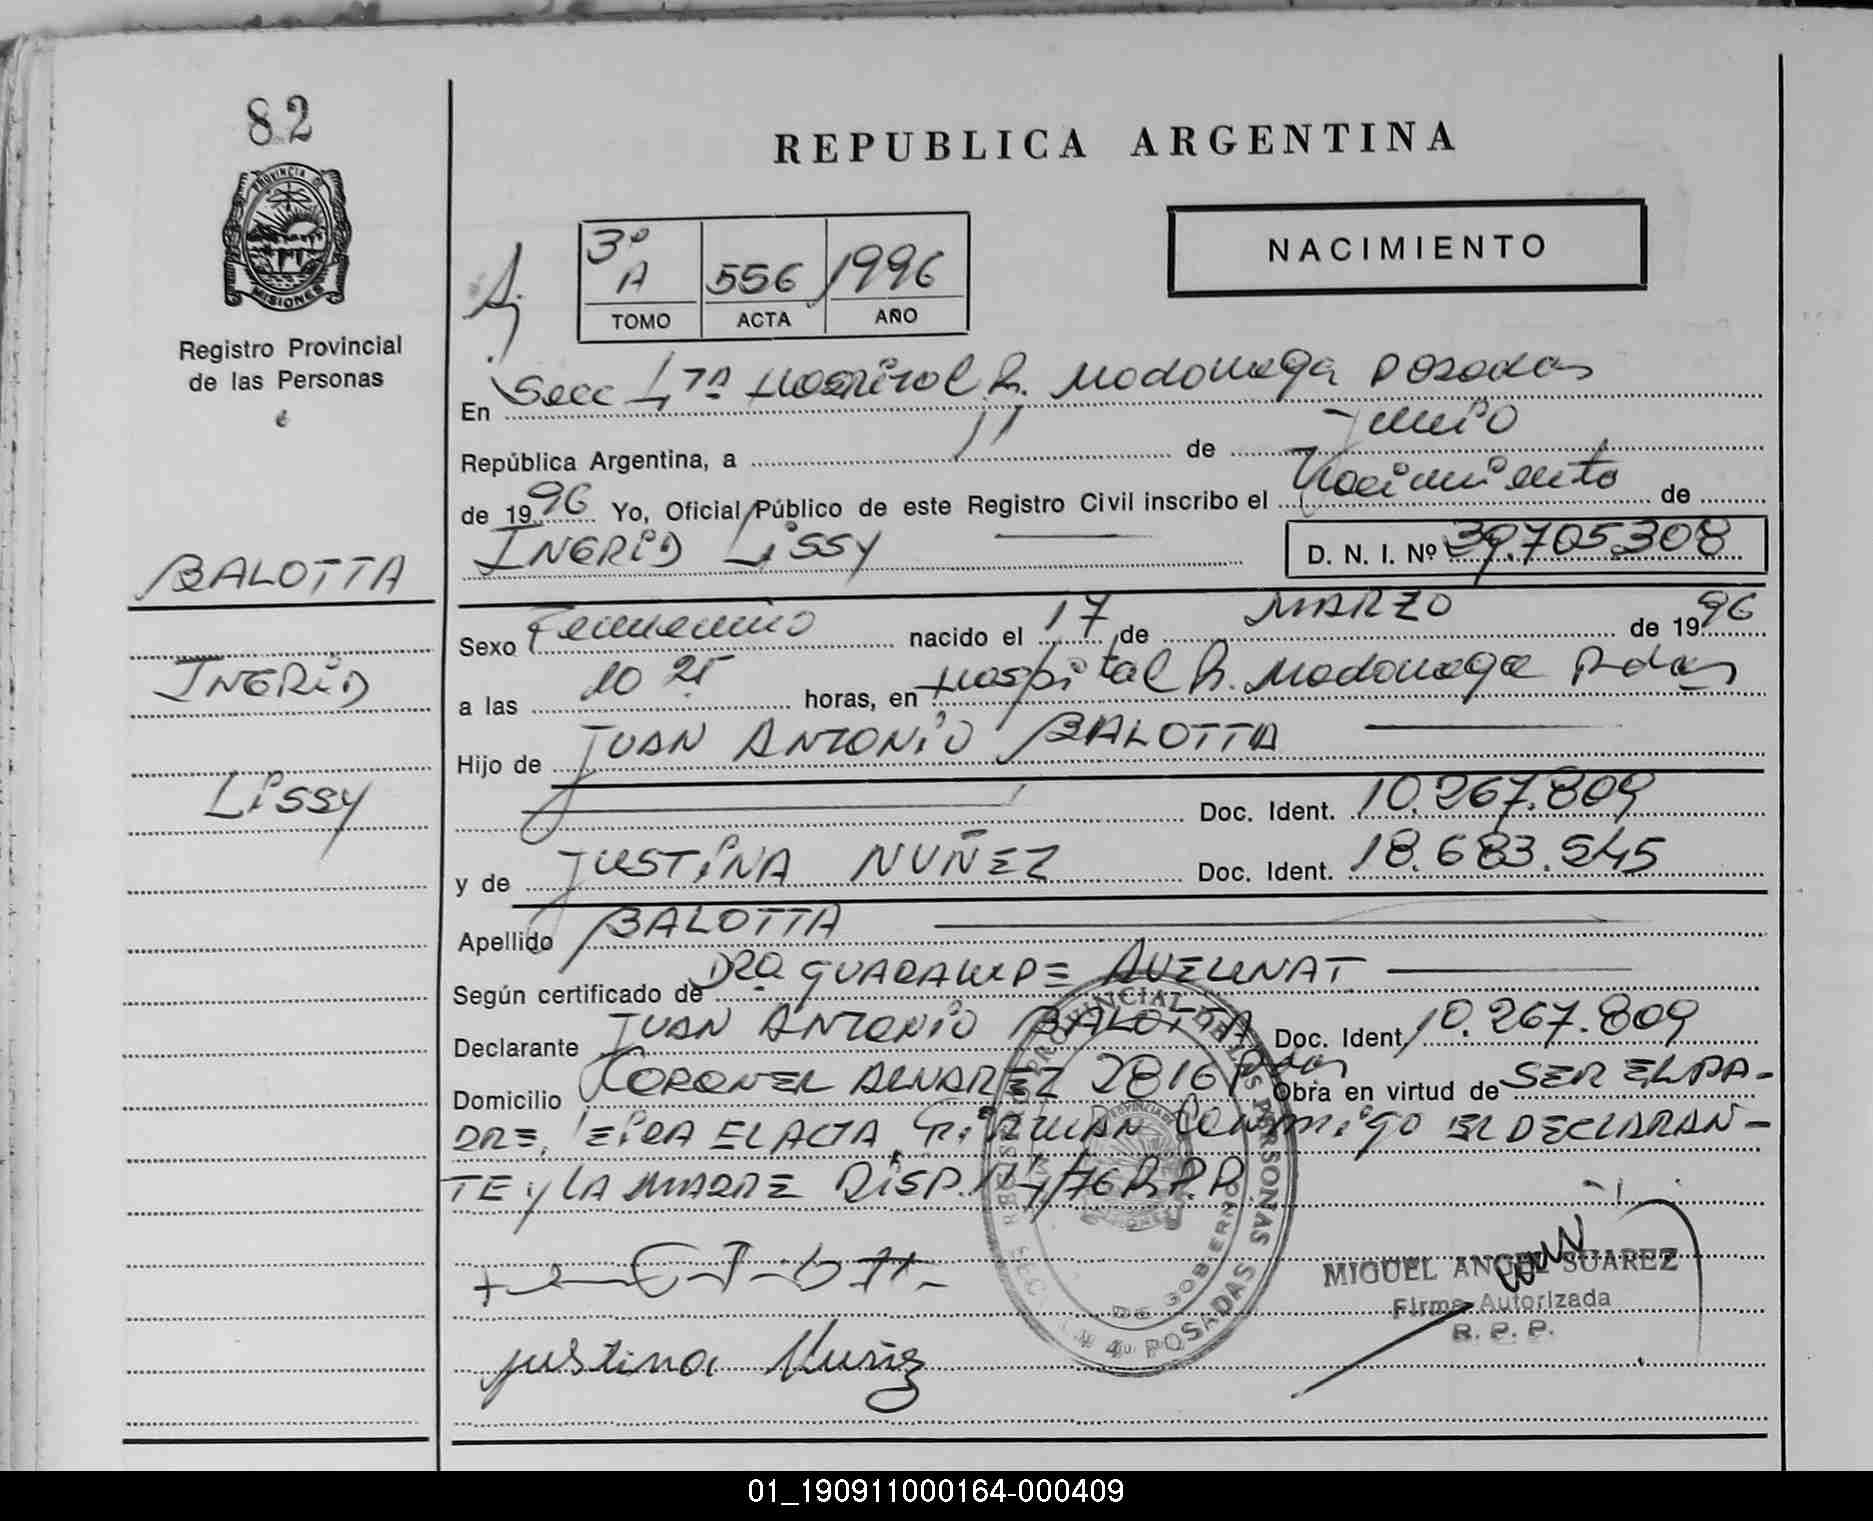 82
PROVINCIA DE
MISIONES
Registro Provincial
de las Personas
BALOTTA
INGRID
LISSY
REPUBLICA ARGENTINA
NACIMIENTO
3º A 556 1996
TOMO ACTA AÑO
En Secc 4ta Hospital R. Madariaga Posadas
República Argentina, a 11 de Junio
de 1996 Yo, Oficial Público de este Registro Civil inscribo el Nacimiento de
INGRID LISSY D. N. I. Nº 39.705.308
Sexo Femenino nacido el 17 de MARZO de 1996
a las 10 25 horas, en Hospital R. Madariaga Pdas
Hijo de JUAN ANTONIO BALOTTA
Doc. Ident. 10.267.809
y de JUSTINA NUÑEZ Doc. Ident. 18.683.545
Apellido BALOTTA
Según certificado de Dra GUADALUPE
Declarante JUAN ANTONIO BALOTTA Doc. Ident. 10.267.809
Domicilio CORONEL ALVAREZ 2816 Pdas Obra en virtud de SER EL PA-
DRE, LEIDA EL ACTA, FIRMAN CONMIGO EL DECLARAN-
TE y LA MADRE DISP. /76 R.P.P.
PROVINCIAL DE LAS PERSONAS
POSADAS
DE GOBIERNO
MIGUEL ANGEL SUAREZ
Firma Autorizada
R. P. P.
Justina Nuñez
01_190911000164-000409